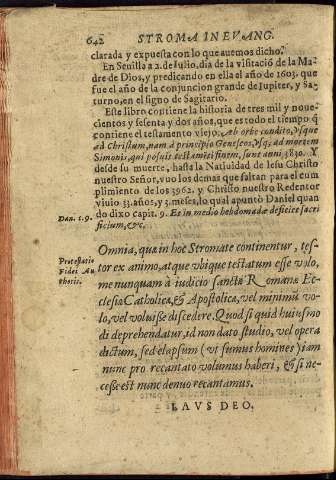 642 STROMA IN EVANG.
clarada y expuesta con lo que auemos dicho.
En Seuilla a 2. de Iulio, dia de la visitació de la Ma-
dre de Dios, y predicando en ella el año de 1603. que
fue el año de la conjuncion grande de Iupiter, y Sa-
turno, en el signo de Sagitario.
Este libro contiene la historia de tres mil y noue-
cientos y sesenta y dos años, que es todo el tiempo q̃
contiene el testamento viejo; Ab orbe condito, vsque
ad Christum, nam à principio Geneseos, vsq; ad mortem
Simonis, qui posuit testamēti finem, sunt anni 3830. Y
desde su muerte, hasta la Natiuidad de Iesu Christo
nuestro Señor, vuo los demas que faltan para el cum
plimiento de los 3962. y Christo nuestro Redentor
viuio 33. años, y 3. meses, lo qual apuntò Daniel quan
Dan. 1.9. do dixo capit. 9. Et in medio hebdomadæ deficiet sacri
ficium, &c.
Protestatio
Fidei Au
thoris.
Omnia, quæ in hoc Stromate continentur, tes-
tor ex animo, atque vbique testatum esse volo,
me nunquam à iudicio sanctæ Romanæ Ec-
clesiæ Catholicæ, & Apostolicæ, vel minimũ vo-
lo, vel voluisse discedere. Quod si quid huiusmo
di deprehendatur, id non dato studio, vel opera
dictum, sed elapsum (vt sumus homines) iam
nunc pro recantato volumus haberi, & si ne-
cesse est nunc denuo recantamus.
LAVS DEO.